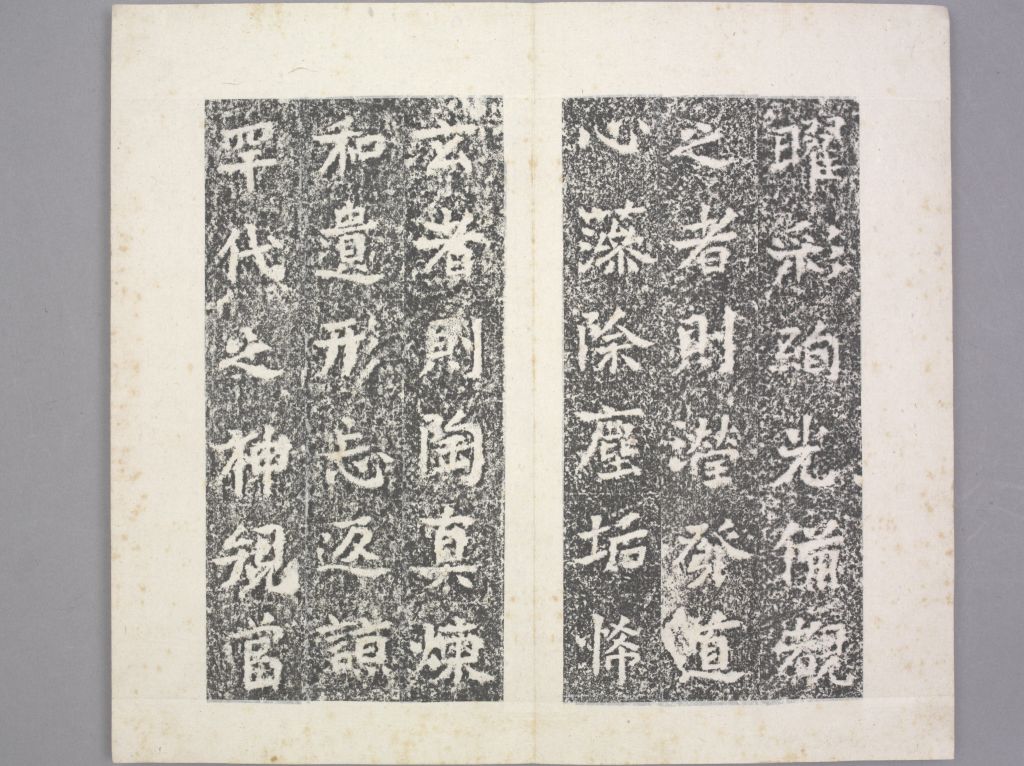 曜彩珣光備覩
之者則瀅發道
心藻除塵垢悕
玄者則陶真煉
和遺形忘返誼
罕代之神規當